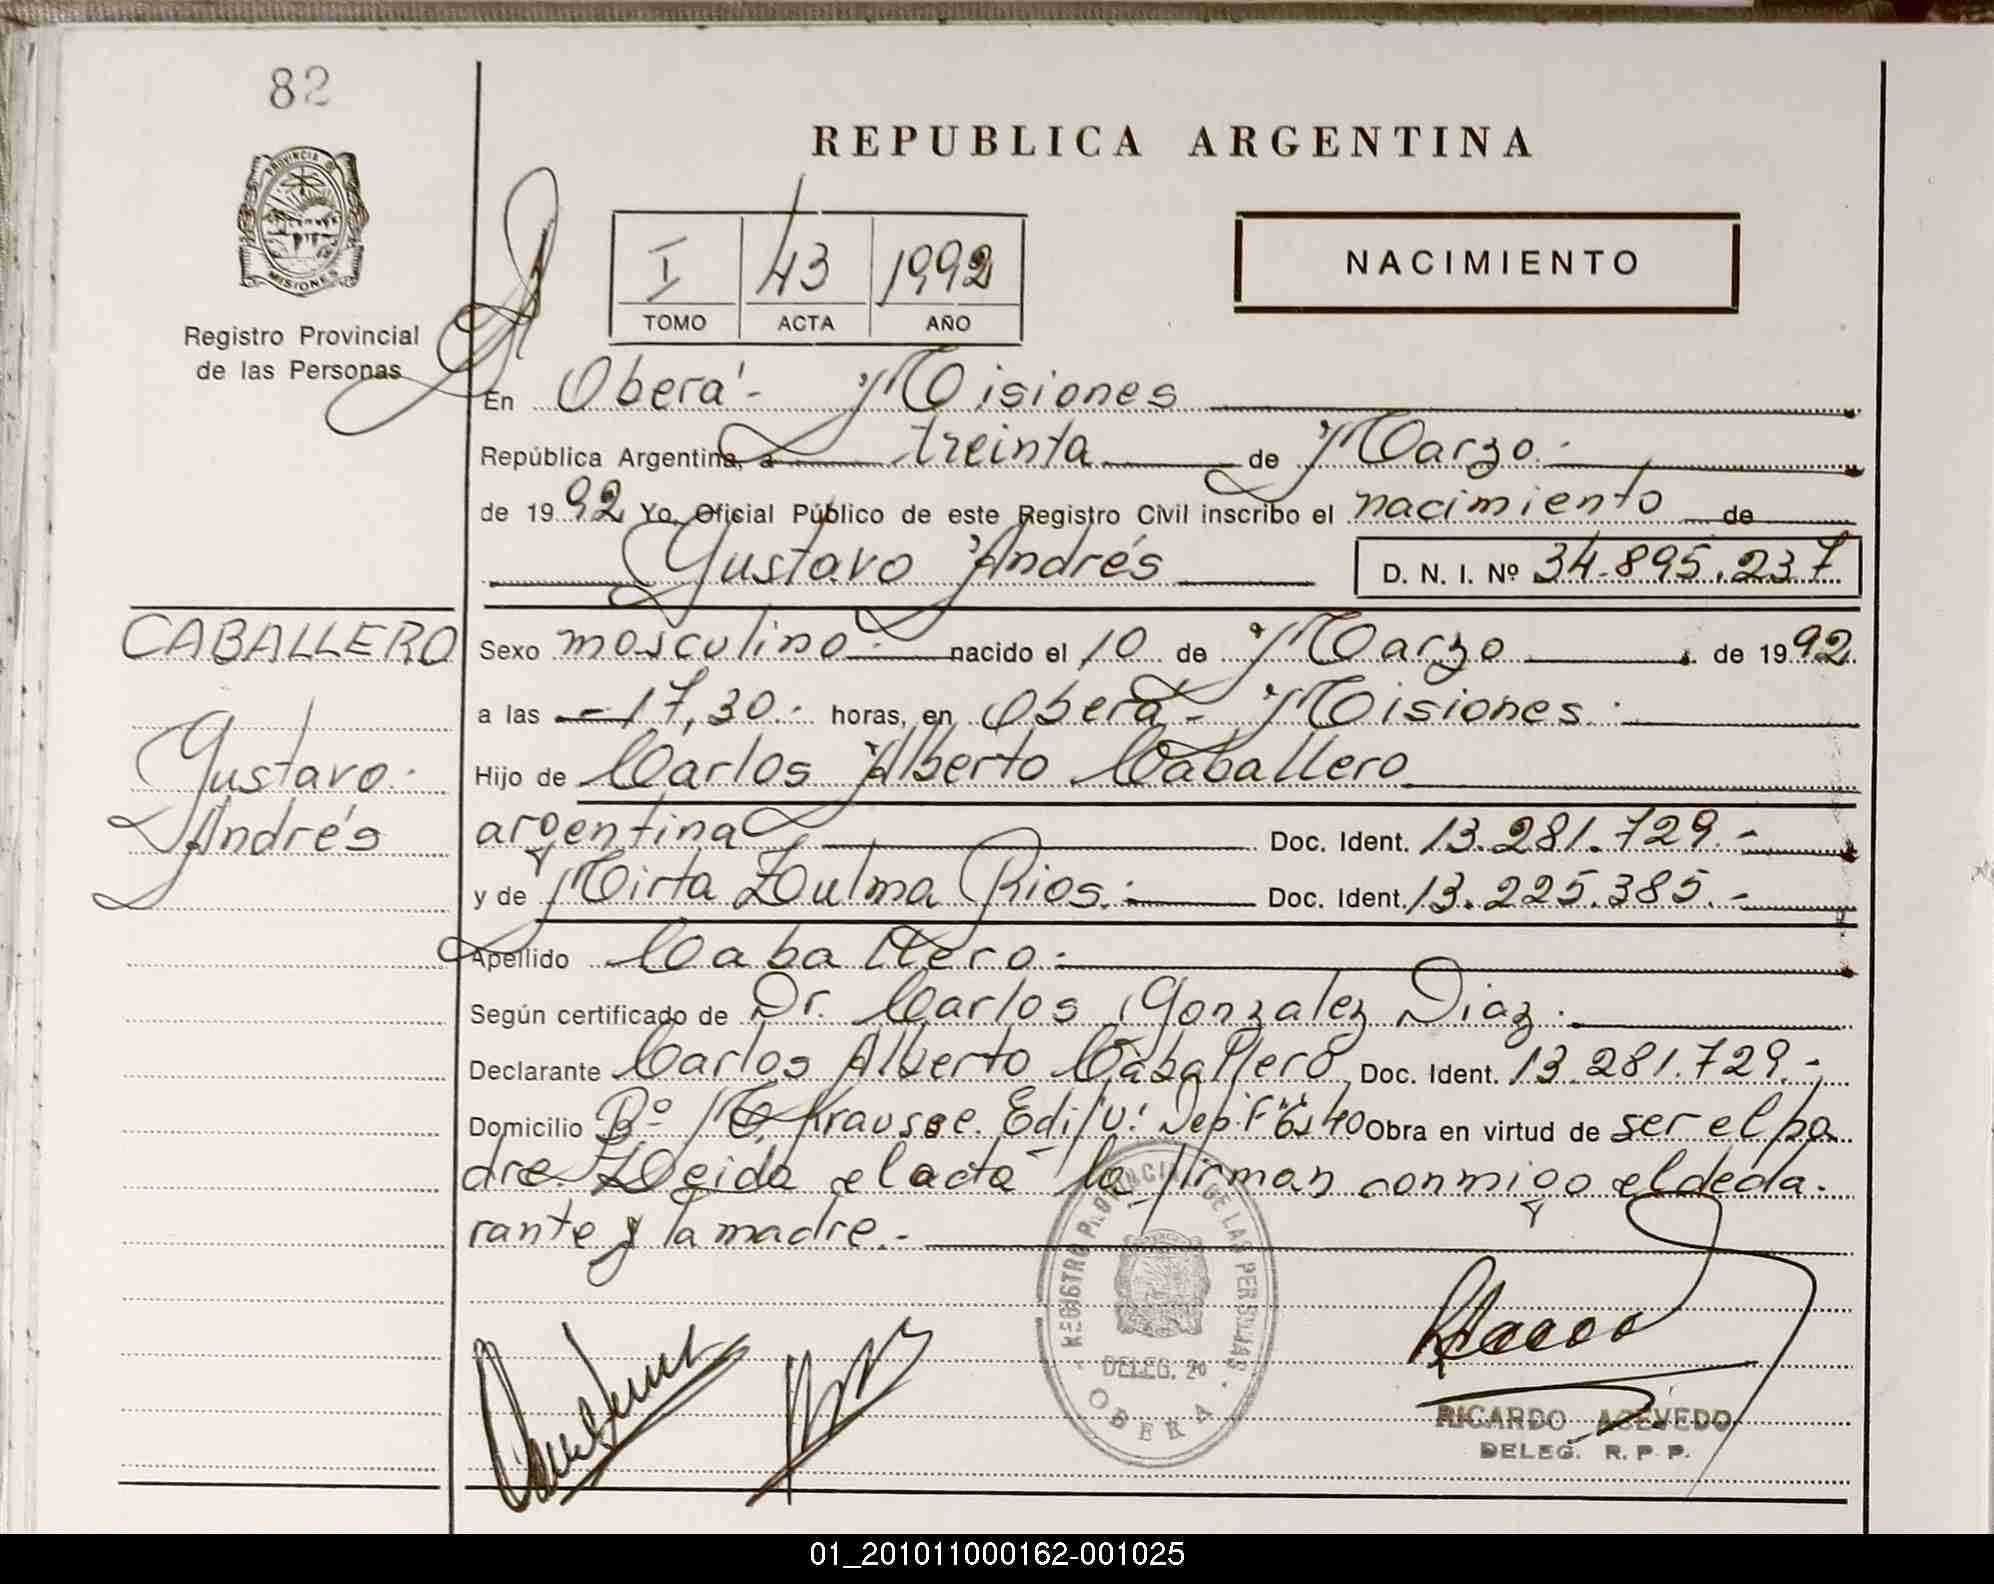 82
REPUBLICA ARGENTINA
PROVINCIA D
MISIONES
I 43 1992
TOMO ACTA AÑO
NACIMIENTO
Registro Provincial
de las Personas
En Oberá - Misiones
República Argentina, a treinta de Marzo.
de 1992 Yo, Oficial Público de este Registro Civil inscribo el nacimiento de
Gustavo Andrés D. N. I. Nº 34.895.237
CABALLERO
Gustavo.
Andrés
Sexo masculino. nacido el 10 de Marzo de 1992
a las - 17,30.- horas, en Oberá - Misiones.
Hijo de Carlos Alberto Caballero
argentina Doc. Ident. 13.281.729.-
y de Mirta Zulma Rios. Doc. Ident. 13.225.385.-
Apellido Caballero.
Según certificado de Dr. Carlos Gonzalez Diaz.
Declarante Carlos Alberto Caballero Doc. Ident. 13.281.729.-
Domicilio Bº Krausse. Obra en virtud de ser el pa
dre Leida el acta la firman conmigo el decla.
rante y la madre.-
REGISTRO PROVINCIAL DE LAS PERSONAS
DELEG. 20
OBERA
RICARDO ACEVEDO
DELEG. R. P. P.
01_201011000162-001025